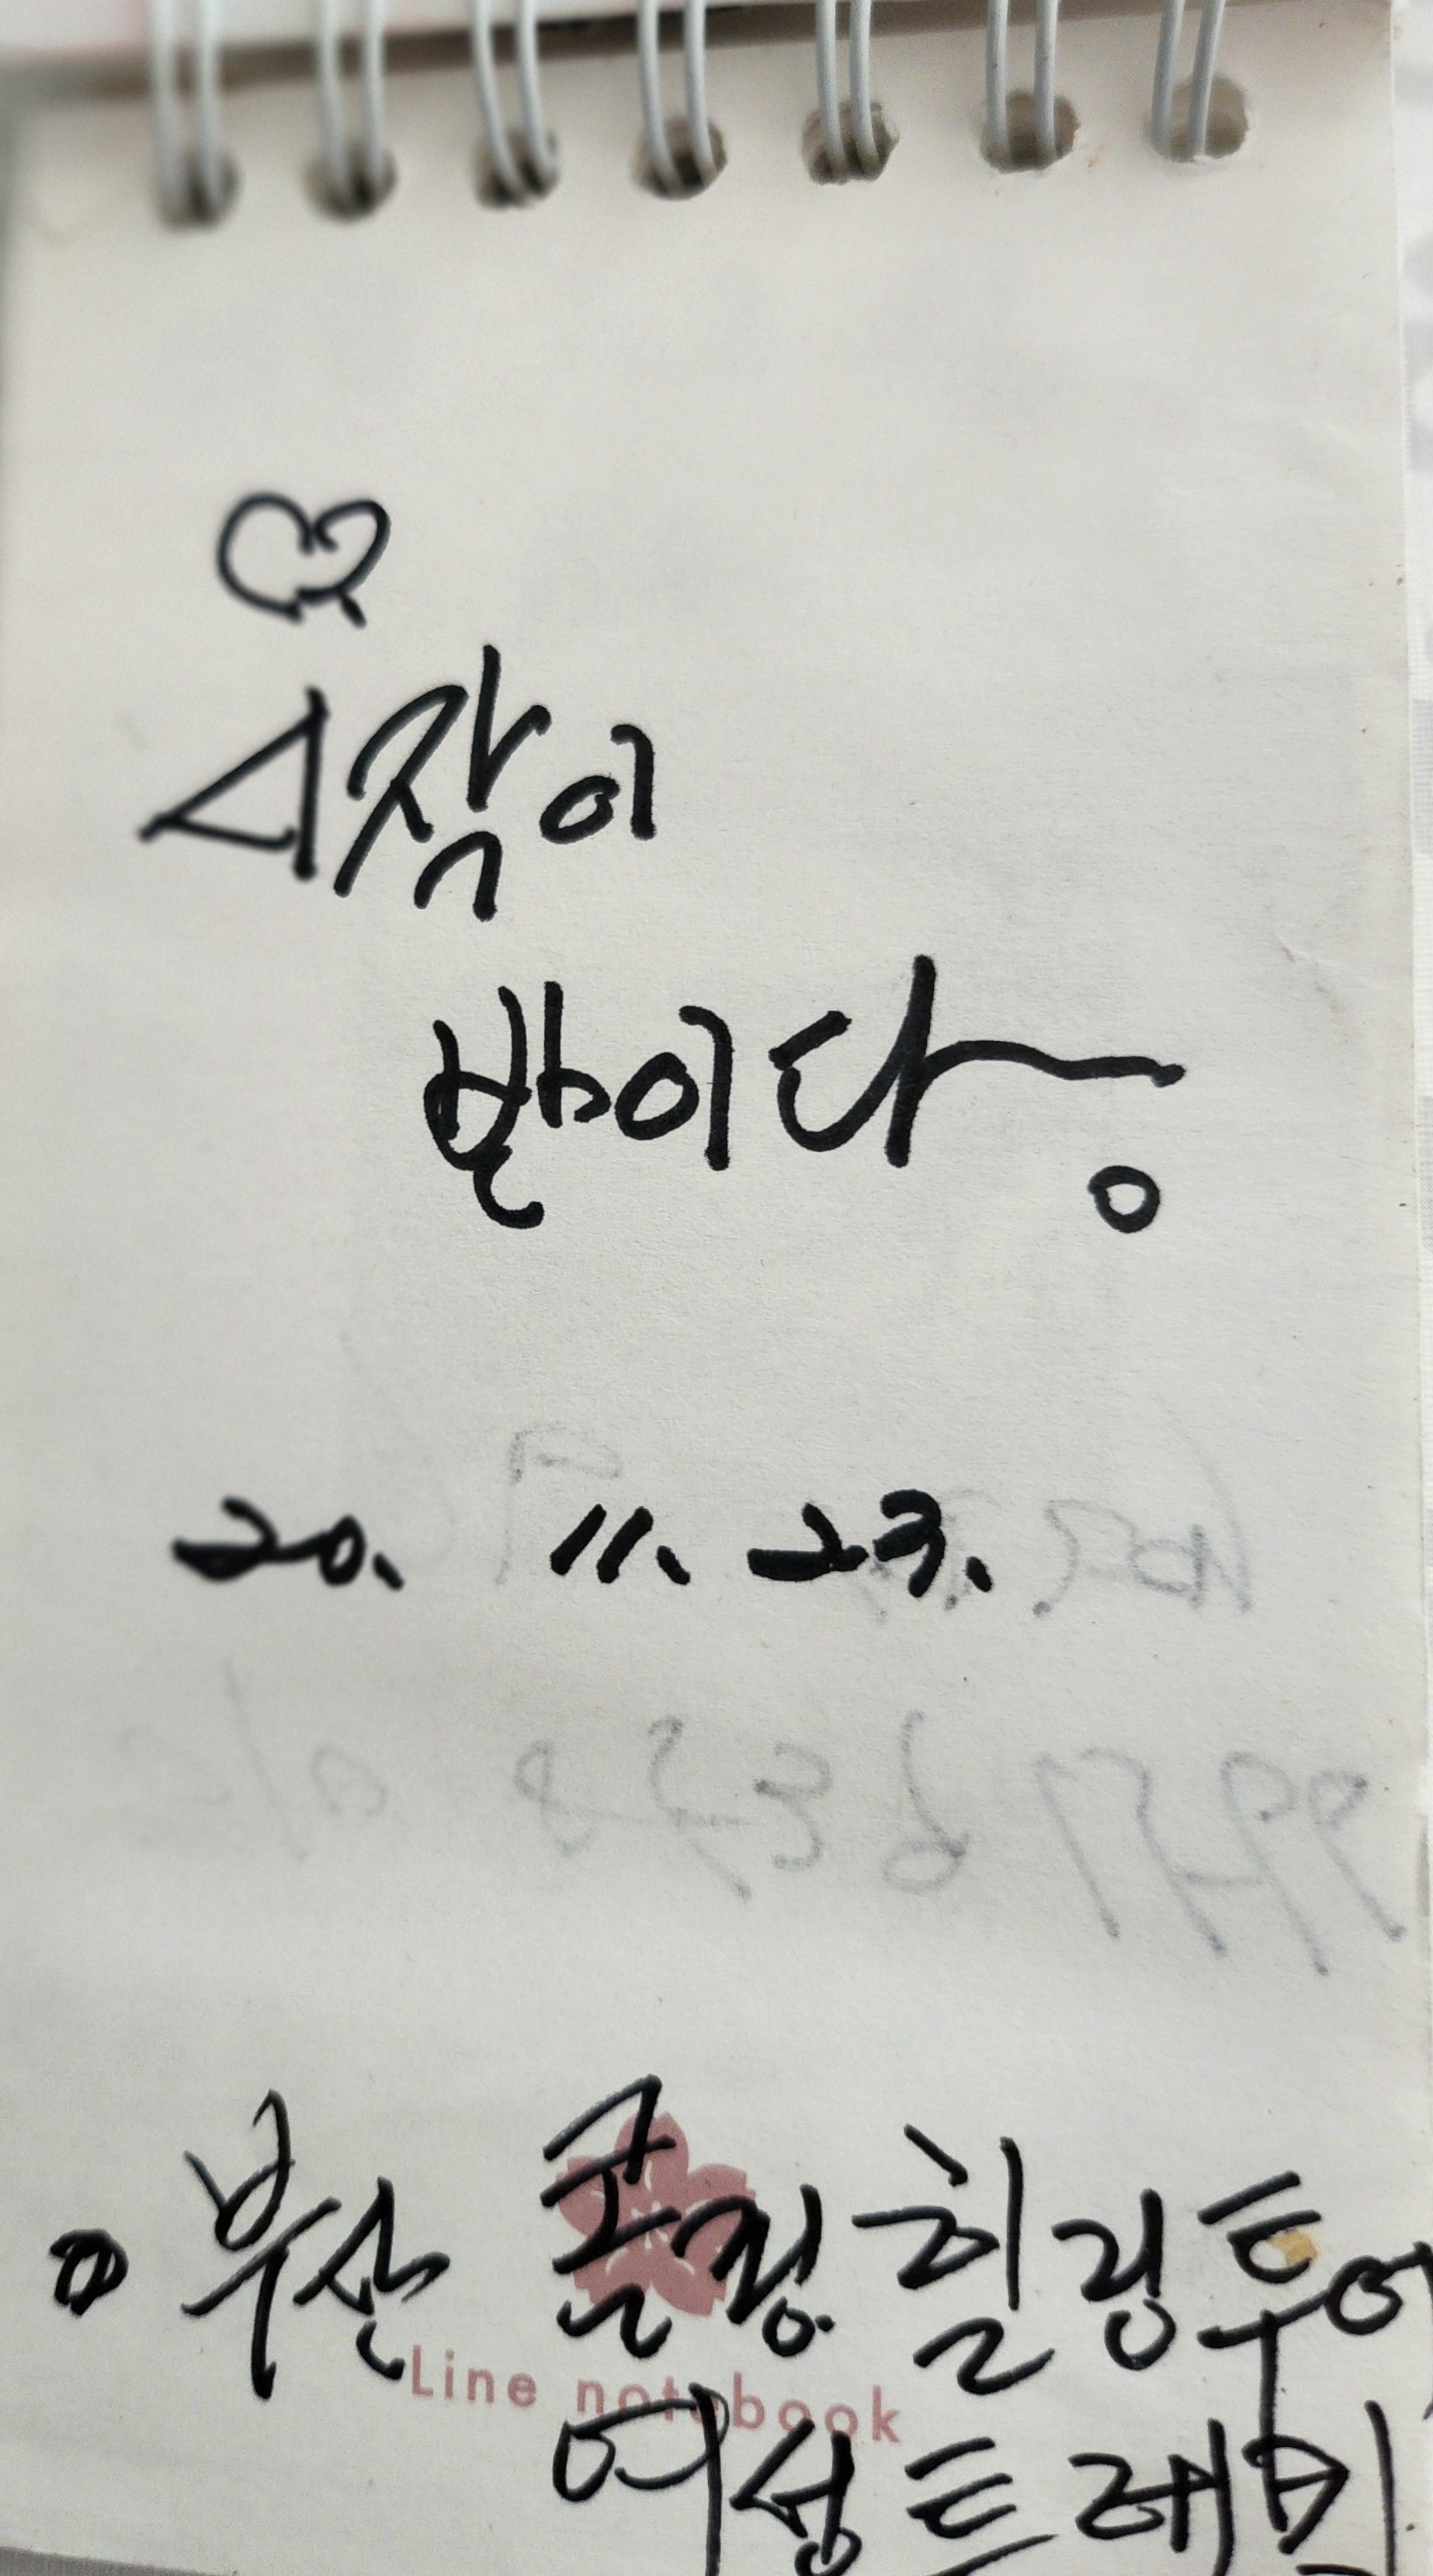 ♡
시작이
반이다.
20. 11. 23.
부산 콜링힐링투어
Line notebook
여성트래